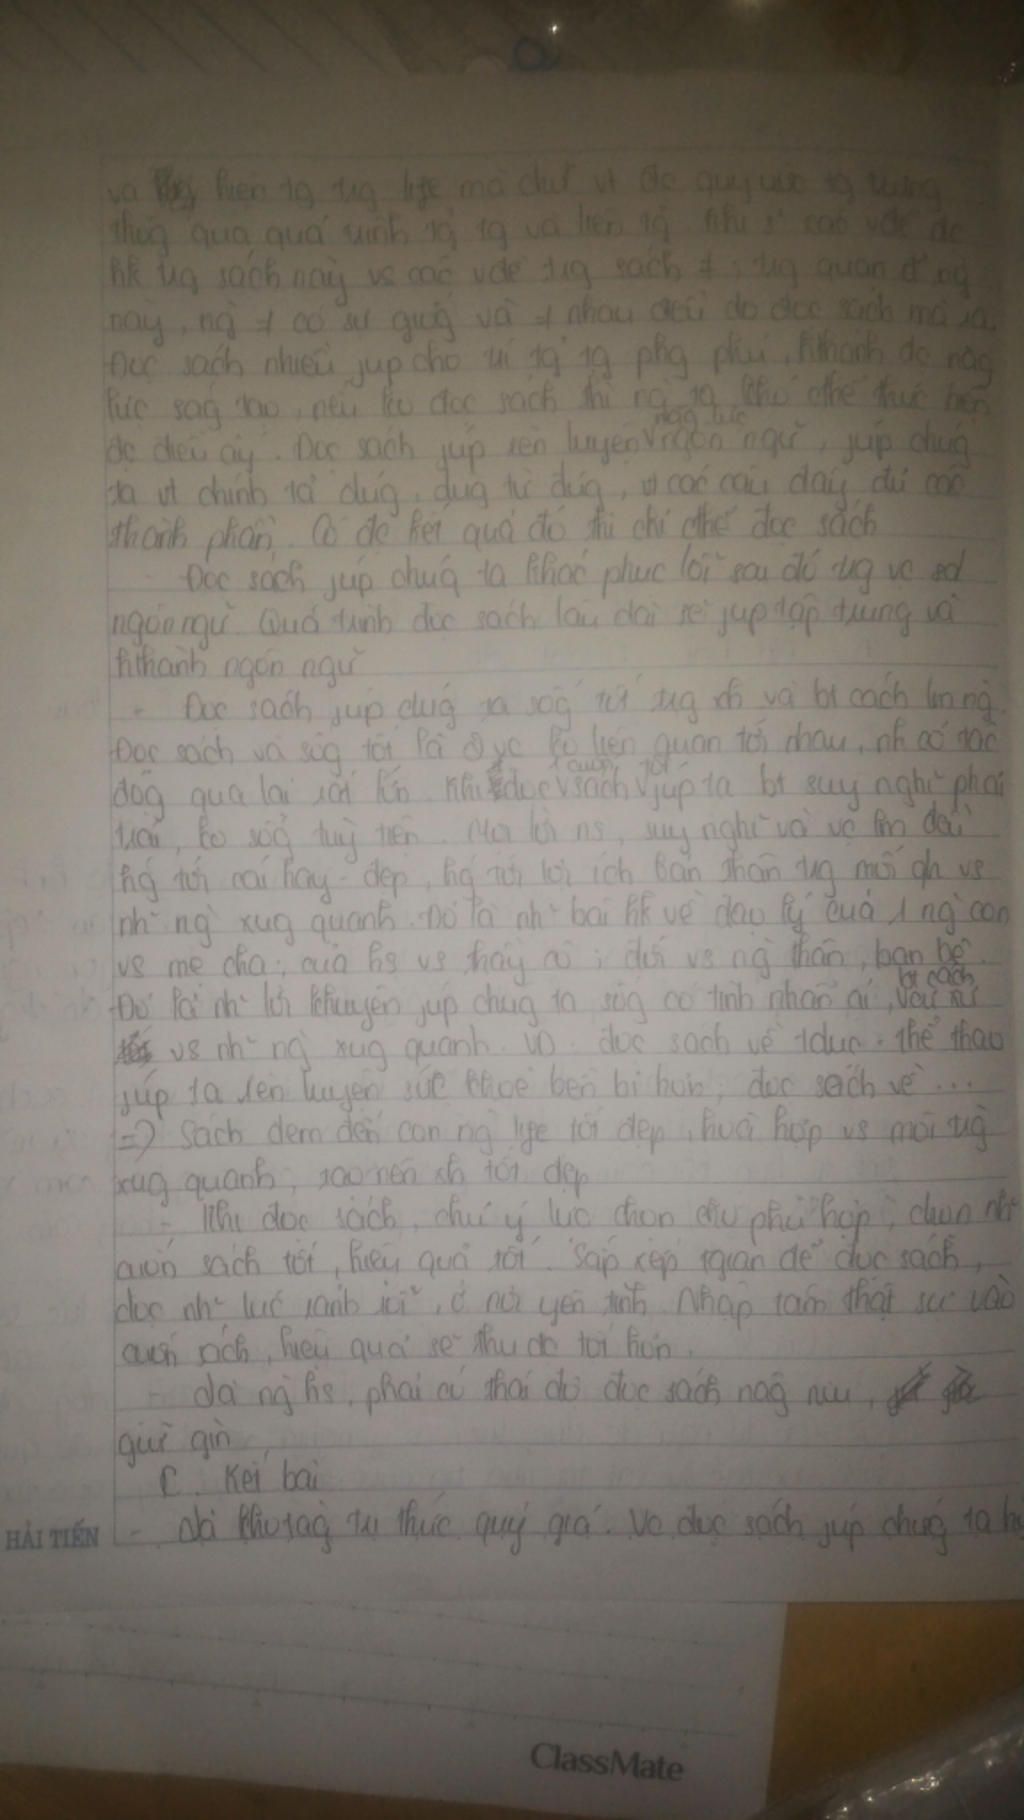 và hiện tg trg life mà chữ vt đc quy ước tg tượng
thôg qua quá trình tg tg và liên tg. Như s² các vđề đc
hk trg sách này vs các vđề trg sách ≠; trg quan đ² ng
này, ng ≠ có sự giốg và ≠ nhau đều do đọc sách mà ra.
Đọc sách nhiều júp cho trí tg tg phg phú, hthành đc năg
lực ság tạo, nếu ko đọc sách thì ng ta khó cthể thực hiện
đc điều ấy. Đọc sách júp rèn luyện năg lực ngôn ngữ, júp chúg
ta vt chính tả đúg, dụg từ đúg, vt các câu đầy đủ các
thành phần. Có đc kết quả đó thì chỉ cthể đọc sách
- Đọc sách júp chúg ta khắc phục lỗi sai đó trg vc sd
ngôn ngữ. Quá trình đọc sách lâu dài sẽ júp tập trung và
hthành ngôn ngữ
- Đọc sách júp chúg ta sốg tốt trg xh và bt cách làm ng.
Đọc sách và sốg tốt là 2 vc ko liên quan tới nhau, nh có tác
độg qua lại rất lớn. Khi đọc 1 cuốn sách tốt júp ta bt suy nghĩ phải
trái, ko sốg tuỳ tiện. Mọi lời ns, suy nghĩ và vc làm đều
hg tới cái hay - đẹp, hg tới lợi ích bản thân trg mối qh vs
nh~ ng xug quanh. Đó là nh~ bài hk về đạo lý của 1 ng con
vs mẹ cha; của hs vs thầy cô; đối vs ng thân, bạn bè.
Đó là nh~ lời khuyên júp chúg ta sốg có tình nhân ái, bt cách cư xử
vs nh~ ng xug quanh. VD: đọc sách về tdục - thể thao
júp ta rèn luyện sức khoẻ bền bỉ hơn; đọc sách về ...
=> Sách đem đến con ng life tốt đẹp, hoà hợp vs môi trg
xug quanh, tạo nên xh tốt đẹp
- Khi đọc sách, chú ý lựa chọn cho phù hợp, chọn nh~
cuốn sách tốt, hiệu quả tốt. Sắp xếp tgian để đọc sách,
đọc nh~ lúc rảnh rỗi, ở nơi yên tĩnh. Nhập tâm thật sự vào
cuốn sách, hiệu quả sẽ thu đc tốt hơn.
- Là ng hs, phải có thái độ đọc sách nâg niu,
giữ gìn,
C. Kết bài
- Là kho tàg tri thức quý giá. Vc đọc sách júp chúg ta
HẢI TIẾN
ClassMate